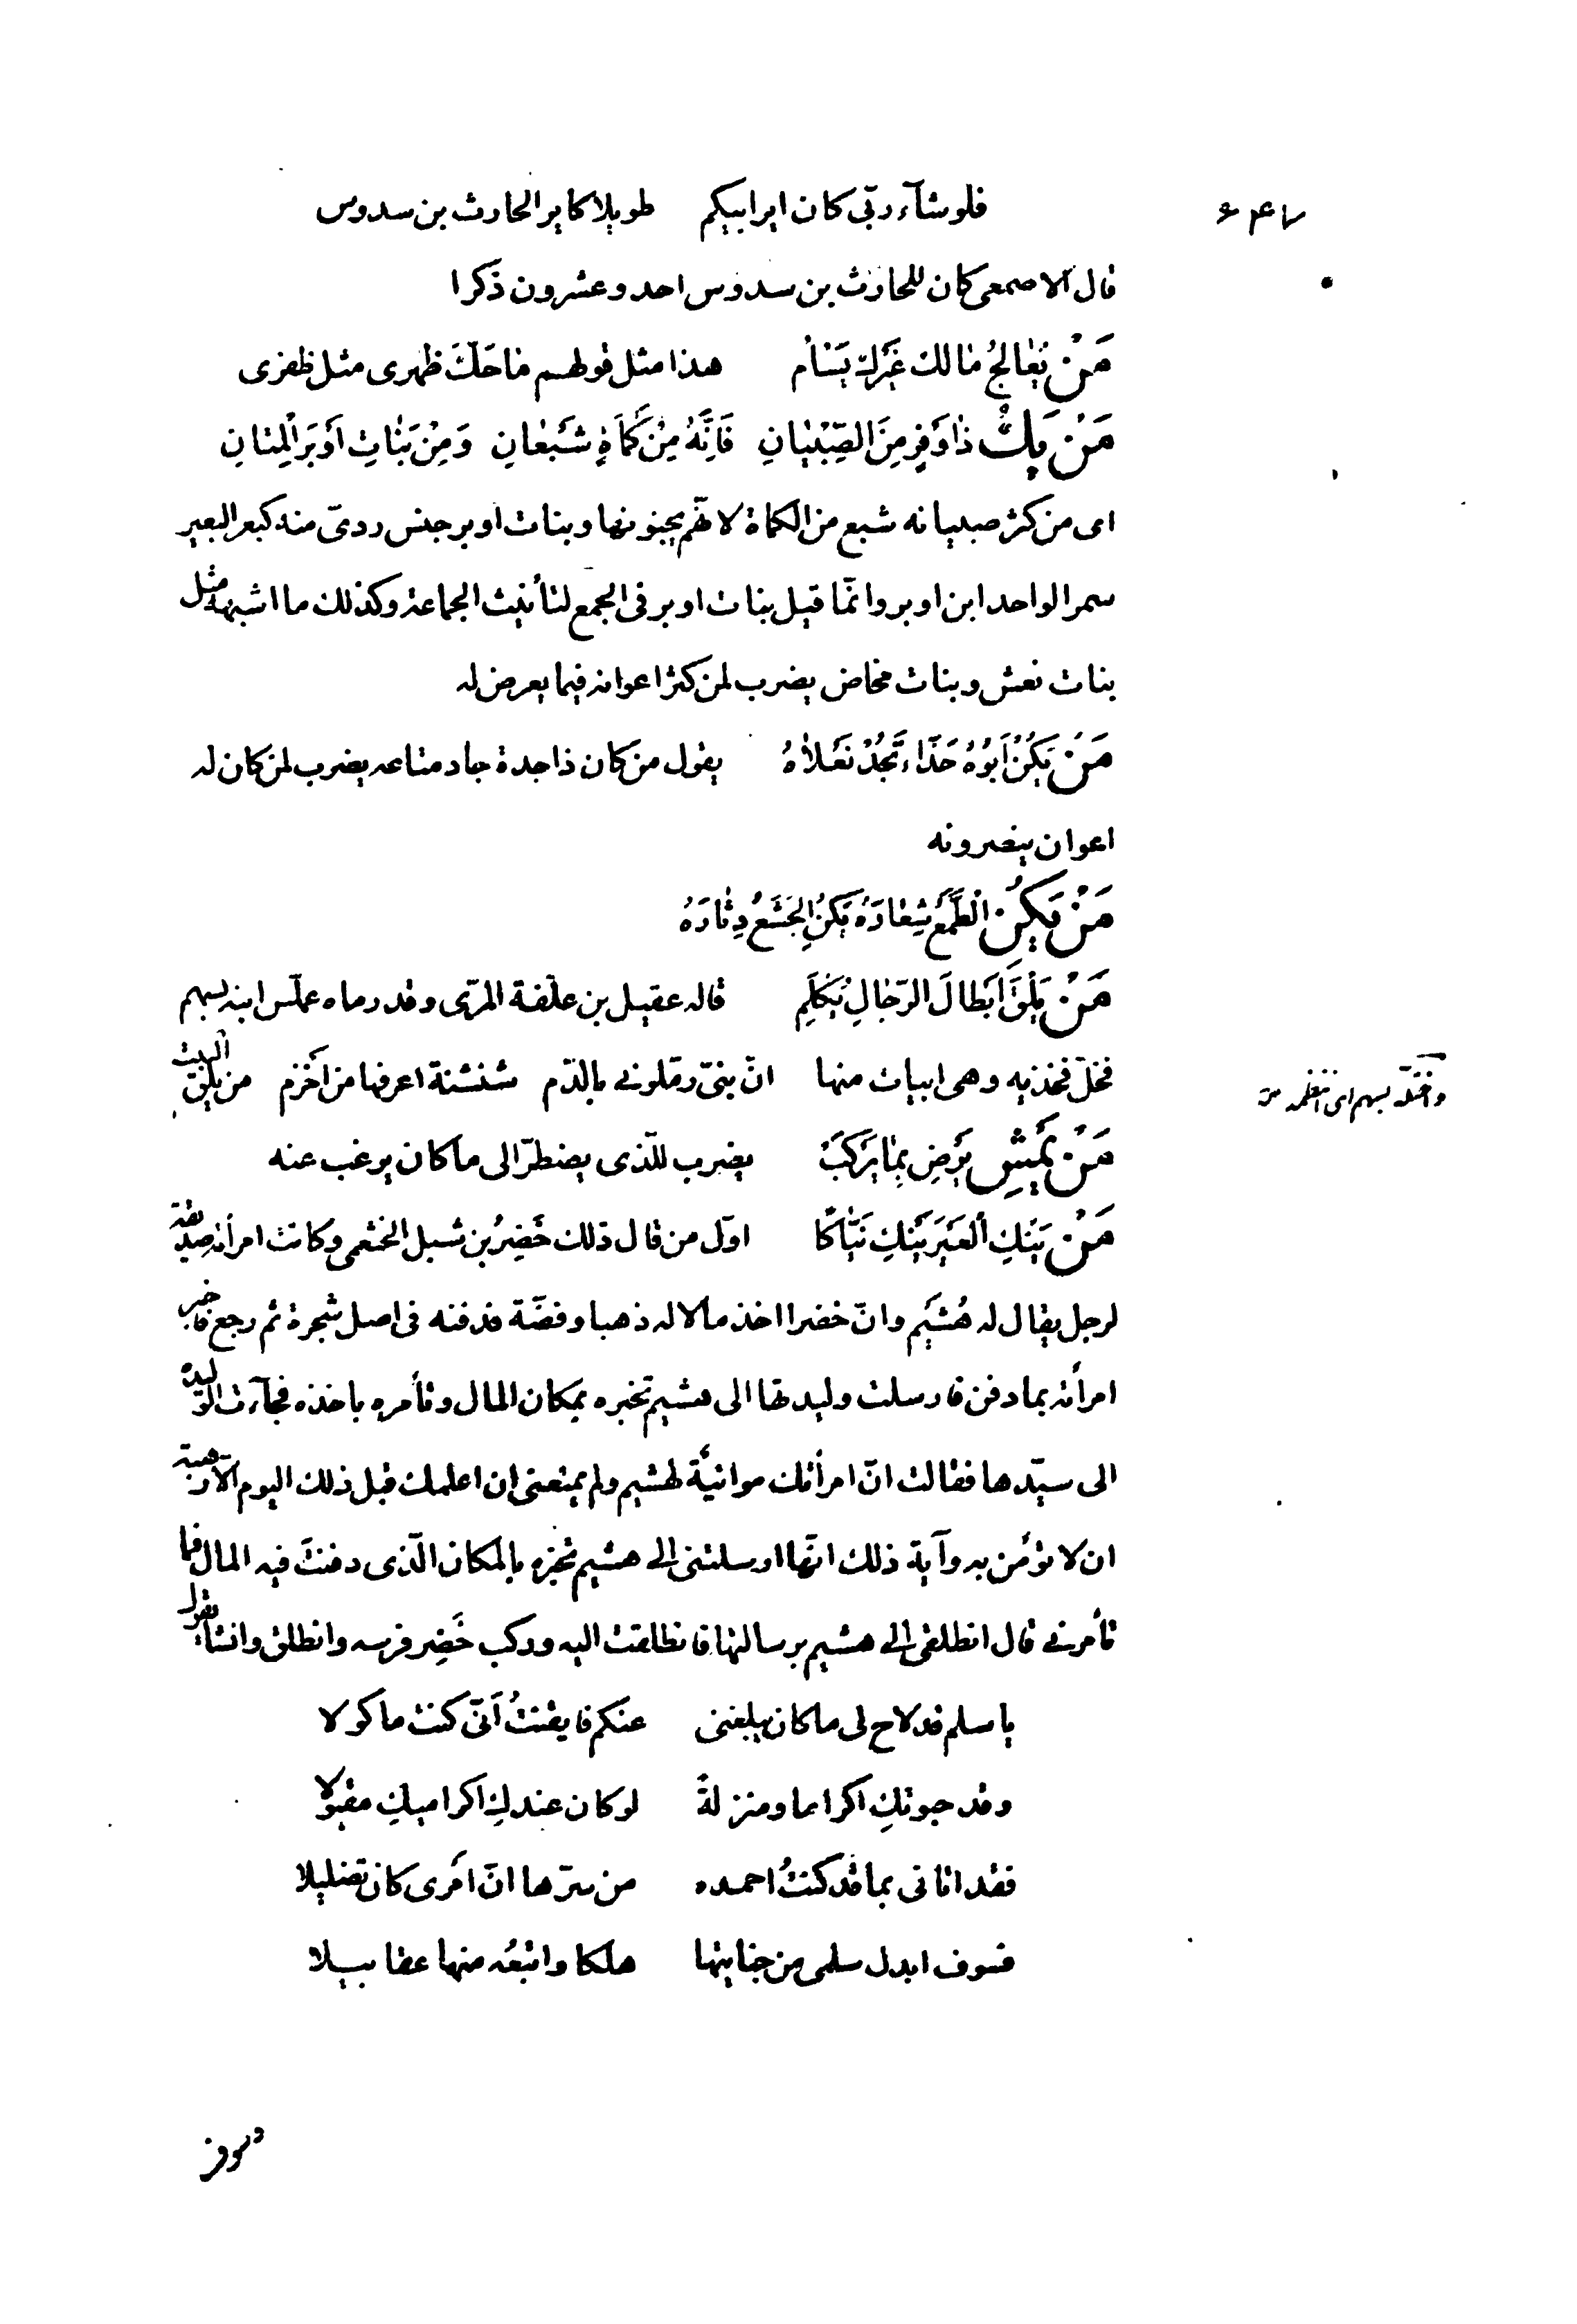 فلو شآء ربّی کان ایر ابیکم    طویلا کایر الحارث بن سدوس
قال الاصمعی کان للحارث بن سدوس احد وعشرون ذکرا
مَنْ یُعٰالِجُ مٰالَکَ غَیْرُکَ یَسْأَم    هذا مثل قولهم ماحَکَّ ظهری مثل ظفری
مَنْ یَکُ ذٰا وَفْرٍ مِنَ الصِّبْیٰانِ    فَاِنَّهُ مِنْ کَمْأَةٍ شَبْعٰانِ    وَمِنْ بَنٰاتِ اَوْبَرَ الْمِتٰانِ
ای من کثر صبیانه شبع من الکماة لانّهم یجبونها وبنات اوبر جنس ردیّ منه کبعر البعیر
سمر الواحد ابن اوبر وانّما قیل بنات اوبر فی الجمع لتأنیث الجماعة وکذلک ما اشبهه مثل
بنات نعش وبنات مخاض یضرب لمن کثر اعوانه فیما یعرض له
مَنْ یَکُنْ اَبُوْهُ حَذّاء تَجُدْ نَعْلاٰهُ    یقول من کان ذاجدة جاد متاعه یضرب لمن کان له
اعوان ینصرونه
مَنْ یَکُنِ الْطَّمَعُ شِعٰارَهُ یَکُنِ الْجَشَعُ دِثٰارَهُ
مَنْ یَلْقَ اَبْطالَ الرّجٰالِ یُکْلَمِ    قاله عقیل بن علّفة المرّی وقد رماه عملّس ابنه بسهم
فخلّ فخذیه وهی ابیات منها    انّ بنیّ رمّلونی بالدّم    شنشنة اعرفها من اَخْزم    من یلق البیت
مَنْ یَمْشِ یَرْضَ بِمٰا یَرْکَبُ    یضرب للّذی یضطرّ الی ما کان یرغب عنه
مَنْ یَنِکِ الْعَیْرَ یَنِکْ نَیّٰاکًا    اوّل من قال ذلک خَضِرُ بن شبل الخثعمی وکانت امرأته صدیقة
لرجل یقال له هُشَیم وانّ خضرا اخذ مالا له ذهبا وفضّة فدفنه فی اصل شجرة ثم رجع فاخبر
امرأته بما دفن فارسلت ولیدتها الی هشیم تخبره بمکان المال وتأمره باخذه فجآءت الولیده
الی سیّدها فقالت انّ امرأتک مواتیة لهشیم ولم یمنعنی ان اعلمک قبل ذلک الیوم الّا رهبة
ان لا تؤمن به وآیة ذلک انّها ارسلتنی الی هشیم تخبره بالمکان الّذی دفنتَ فیه المال فما
تأمرنی قال انطلقی الی هشیم برسالتها فانطلقت الیه ورکب خَضِر فرسه وانطلق وانشأ یقول
یا سلم قد لاح لی ما کان یبلغنی    عنکم فایقنتُ اَنّی کنت ماکولا
وقد حبوتکِ اکراما ومنزلةً    لو کان عندکِ اکرامیکِ مقبولا
فقد اتانی بما قد کنتُ احمده    من سرّها انّ اَمری کان تضلیلا
فسوف ابدل سلمی من جنایتها    هلکا واتبعُه منها عقابیلا